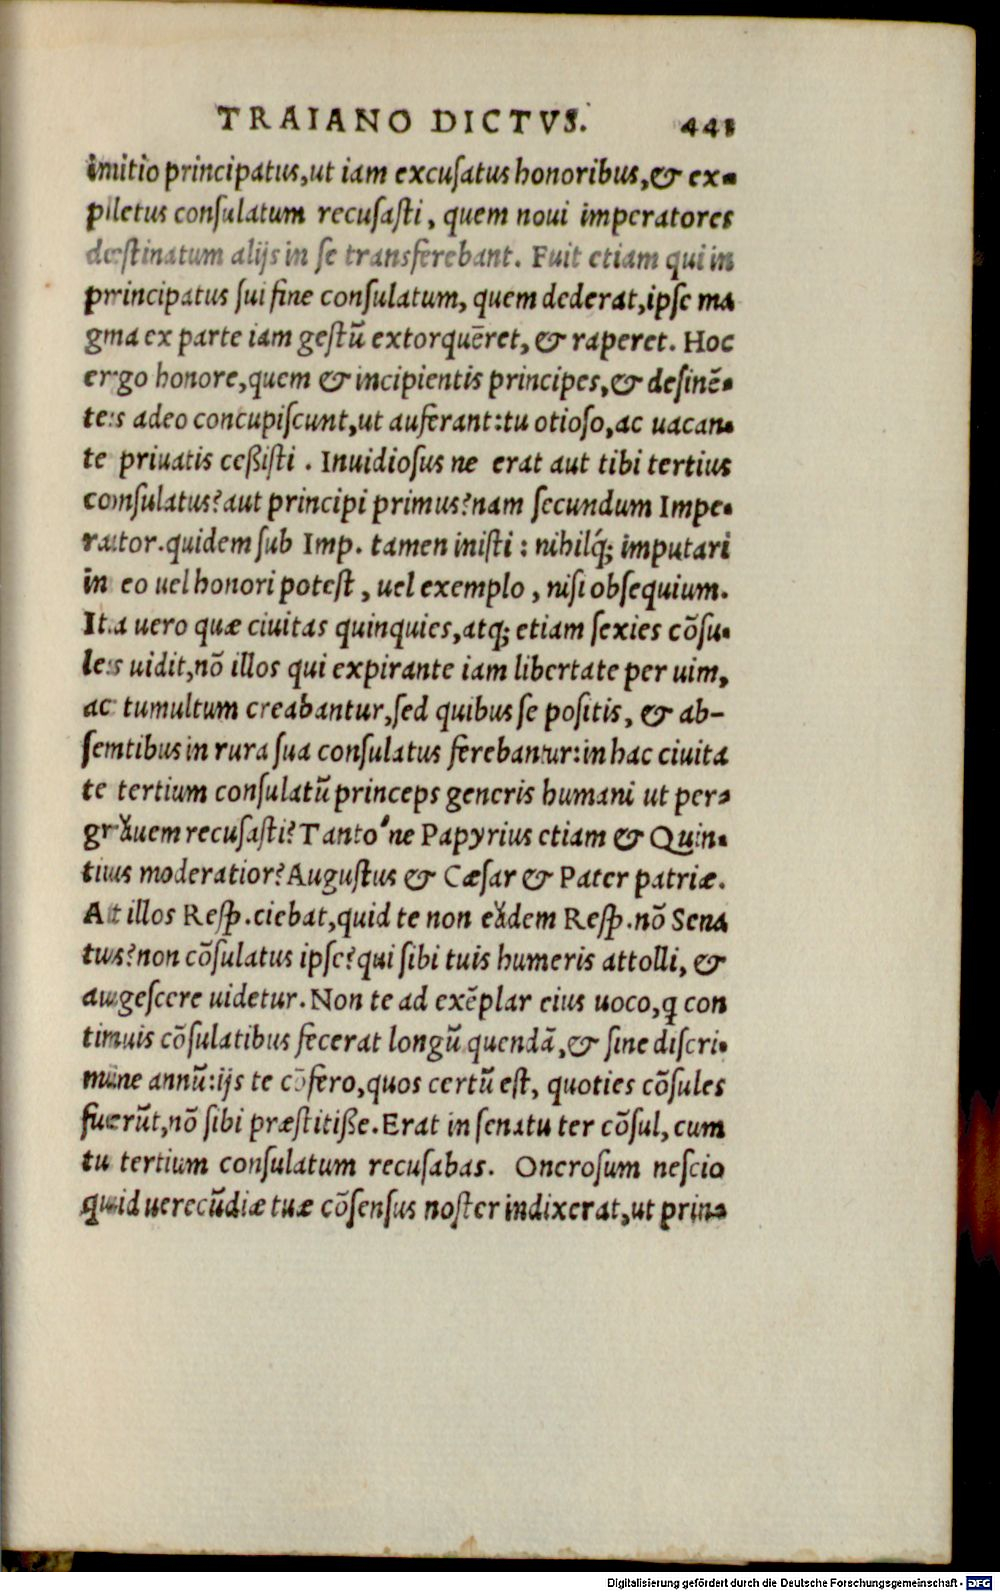 TRAIANO DICTVS. 441
initio principatus,ut iam excusatus honoribus,& ex-
pletus consulatum recusasti, quem noui imperatores
destinatum alijs in se transferebant. Fuit etiam qui in
principatus sui fine consulatum, quem dederat,ipse ma
gna ex parte iam gestū extorquēret, & raperet. Hoc
ergo honore,quem & incipientis principes,& desinē-
tes adeo concupiscunt,ut auferant:tu otioso,ac uacan-
te priuatis ceßisti . Inuidiosus ne erat aut tibi tertius
consulatus?aut principi primus?nam secundum Impe-
rator.quidem sub Imp. tamen inisti : nihilq́; imputari
in eo uel honori potest , uel exemplo , nisi obsequium.
Ita uero quæ ciuitas quinquies,atq; etiam sexies cōsu-
les uidit,nō illos qui expirante iam libertate per uim,
ac tumultum creabantur,sed quibus se positis, & ab-
sentibus in rura sua consulatus ferebantur:in hac ciuita
te tertium consulatū princeps generis humani ut per-
grauem recusasti? Tanto'ne Papyrius etiam & Quin-
tius moderatior?Augustus & Cæsar & Pater patriæ.
At illos Resp.ciebat,quid te non eadem Resp.nō Sena
tus?non cōsulatus ipse?qui sibi tuis humeris attolli, &
augescere uidetur.Non te ad exēplar eius uoco,q con
tinuis cōsulatibus fecerat longū quendā,& sine discri-
mine annū:ijs te cōfero,quos certū est, quoties cōsules
fuerūt,nō sibi præstitiße.Erat in senatu ter cōsul, cum
tu tertium consulatum recusabas. Onerosum nescio
quid uerecūdiæ tuæ cōsensus noster indixerat,ut prin-
Digitalisierung gefördert durch die Deutsche Forschungsgemeinschaft - DFG